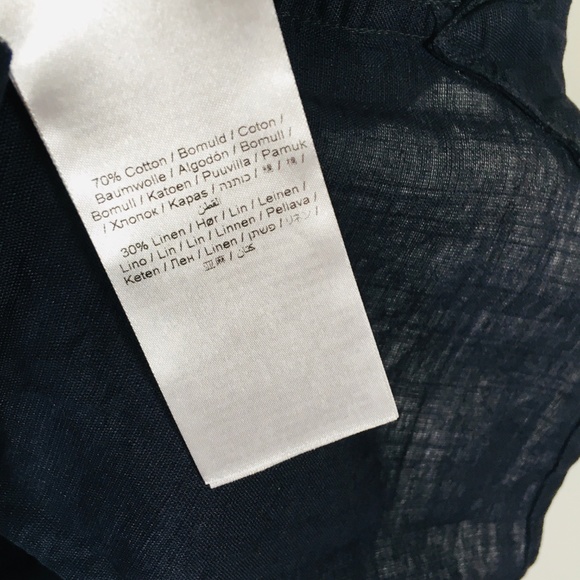 70% Cotton / Bomuld / Coton /
Baumwolle / Algodón / Bomull /
Bomull / Katoen / Puuvilla / Pamuk
/ Хлопок / Kapas / כותנה / 棉 / 棉 /
القطن
30% Linen / Hør / Lin / Leinen /
Lino / Lin / Lin / Linnen / Pellava /
Keten / Лен / Linen / פשתן /
亚麻 / كتان